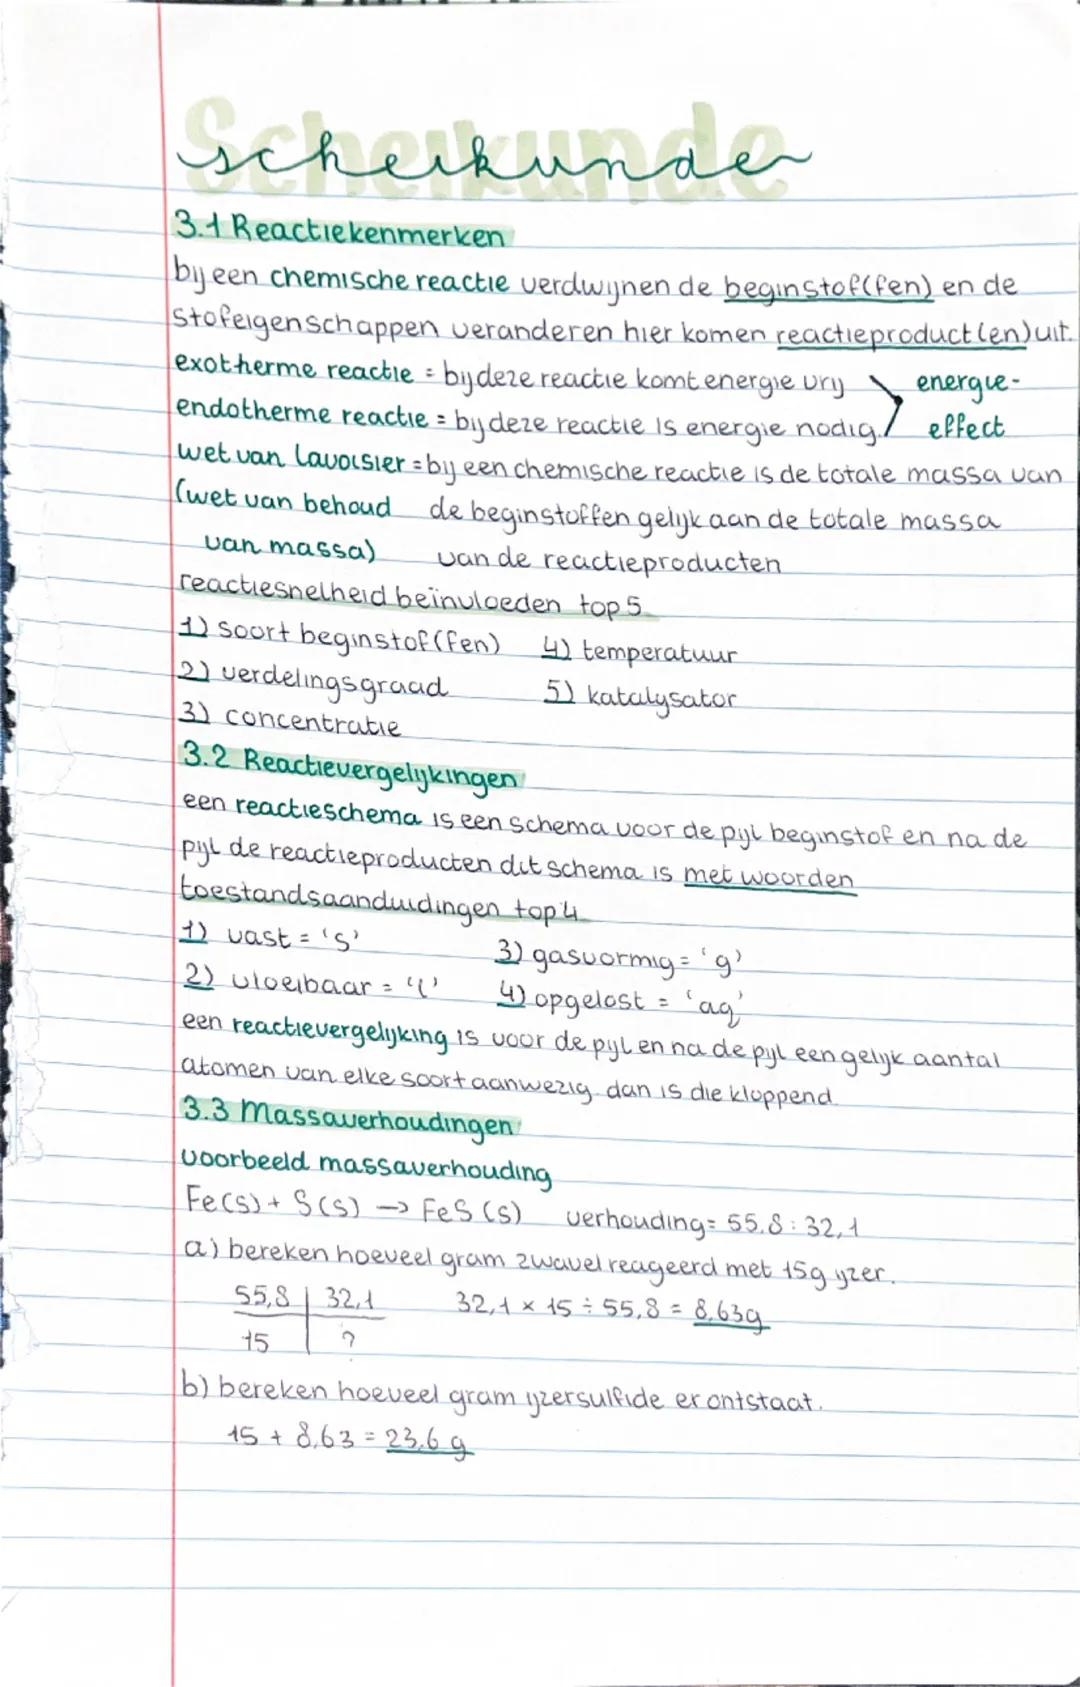 Scheikunde
scheikunde
3.1 Reactiekenmerken
bij een chemische reactie verdwijnen de beginstof(fen) en de
stofeigenschappen veranderen hier komen reactieproduct(en) uit.
exotherme reactie = bij deze reactie komt energie vrij energie-
endotherme reactie = bij deze reactie is energie nodig. effect
wet van Lavoisier = bij een chemische reactie is de totale massa van
(wet van behoud de beginstoffen gelijk aan de totale massa
van massa) van de reactieproducten
reactiesnelheid beïnvloeden top 5
1) soort beginstof(fen) 4) temperatuur
2) verdelingsgraad 5) katalysator
3) concentratie
3.2 Reactievergelijkingen
een reactieschema is een schema voor de pijl beginstof en na de
pijl de reactieproducten dit schema is met woorden
toestandsaanduidingen top 4
1) vast = 's' 3) gasvormig = 'g'
2) vloeibaar = 'l' 4) opgelost = 'aq'
een reactievergelijking is voor de pijl en na de pijl een gelijk aantal
atomen van elke soort aanwezig. dan is die kloppend
3.3 Massaverhoudingen
voorbeeld massaverhouding
Fe(s) + S(s) → FeS (s) verhouding = 55.8 : 32,1
a) bereken hoeveel gram zwavel reageerd met 15g ijzer.
55,8 | 32,1 32,1 × 15 ÷ 55,8 = 8,63g
15 | ?
b) bereken hoeveel gram ijzersulfide er ontstaat.
15 + 8,63 = 23,6 g